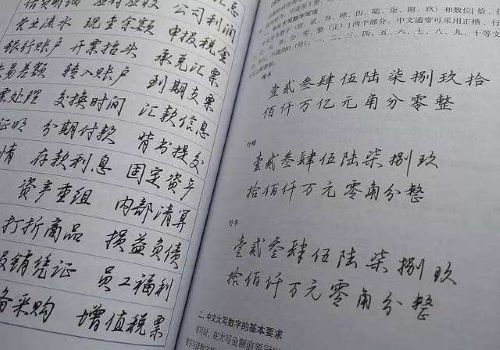 公司利润
营业流水 现查余额 申报税金
银行账户 开票抬头 承兑汇票
易差额 转入账户 到期支票
票处理 交换时间 汇款信息
证明 分期付款 背书提交
情 存款利息 固定资产
资产重组 内部清算
打折商品 损益负债
报销凭证 员工福利
备采购 增值税票
壹贰叁肆伍陆柒捌玖拾
佰仟万亿元角分零整
行楷
壹贰叁肆伍陆柒捌玖
拾佰仟万元零角分整
行书
壹贰叁肆伍陆柒捌玖
拾佰仟万元零角分整
二、中文大写数字的基本要求